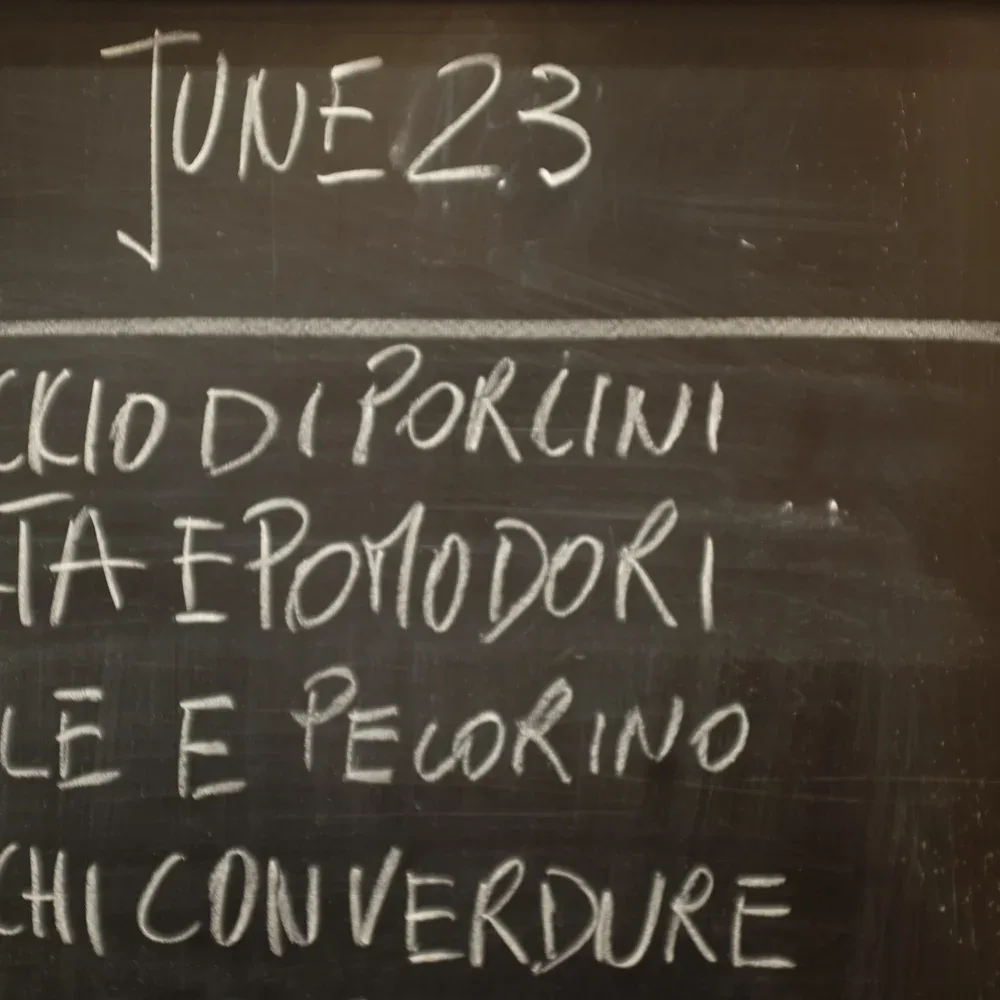 JUNE 23
CKIO DI PORCINI
TA E POMODORI
LE E PECORINO
CHI CON VERDURE